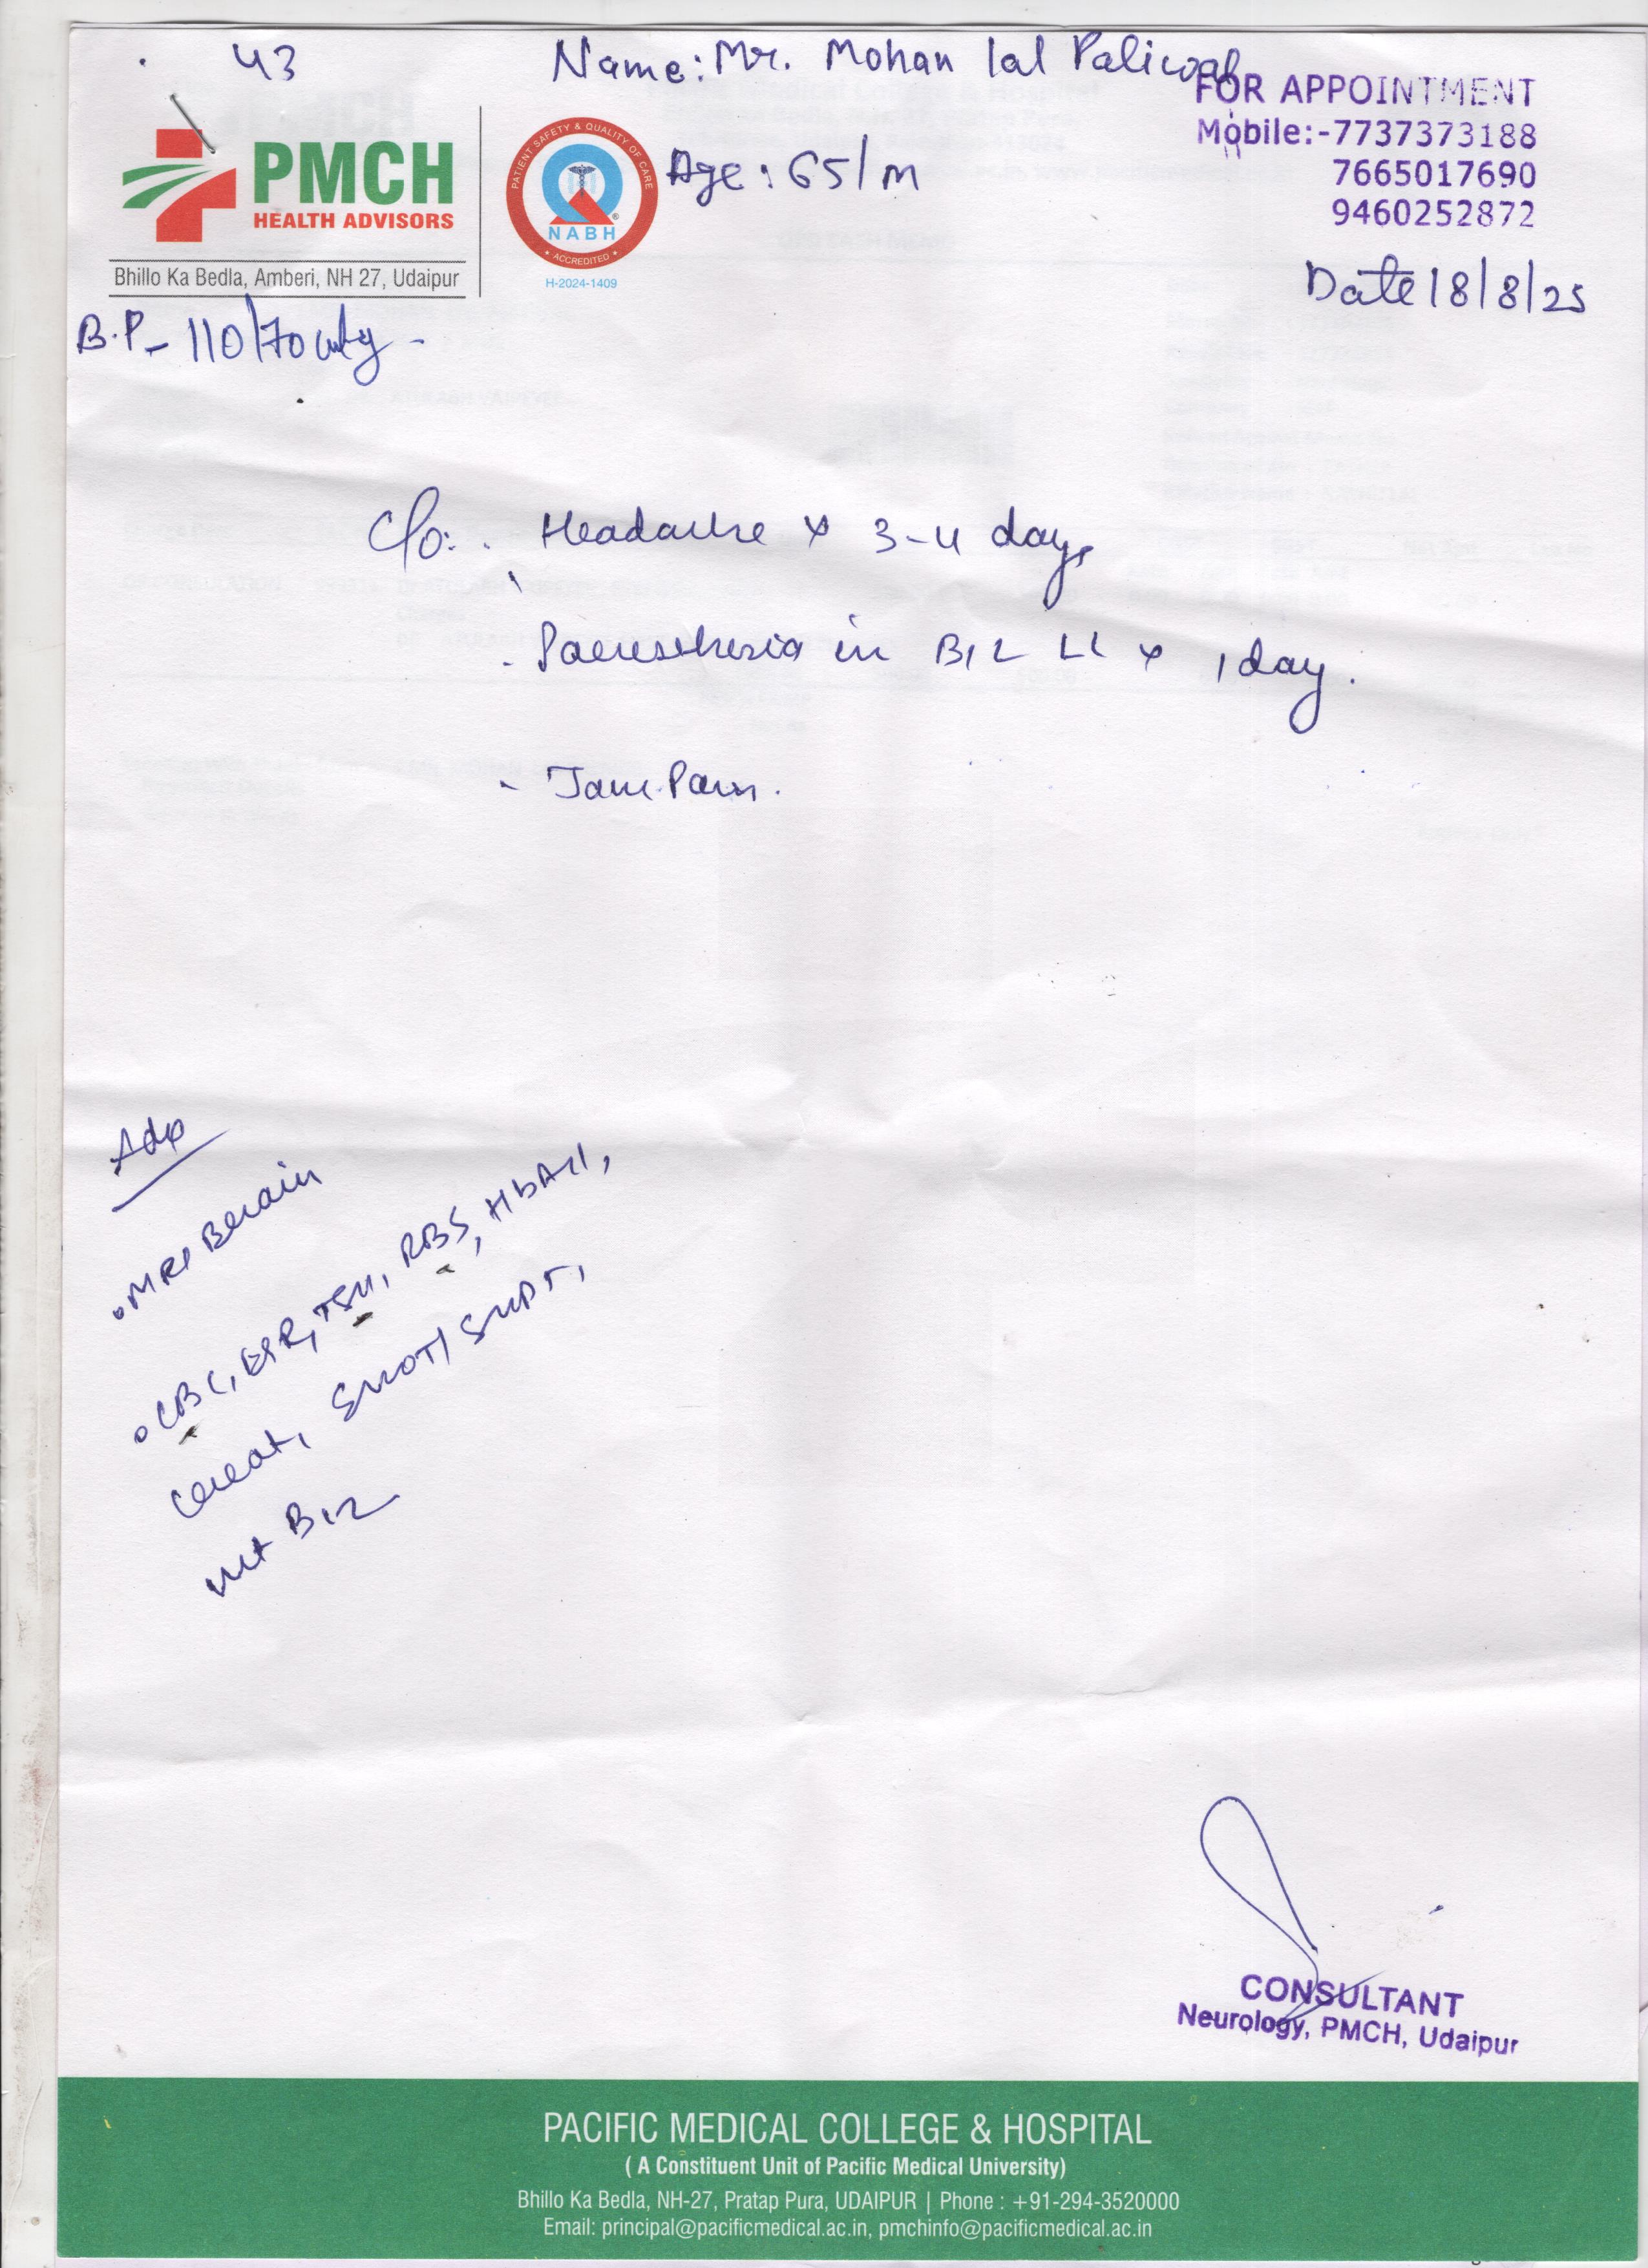 43
Name: Mr. Mohan lal Paliwal
FOR APPOINTMENT
Mobile:-7737373188
7665017690
9460252872
PMCH
HEALTH ADVISORS
Bhillo Ka Bedla, Amberi, NH 27, Udaipur
PATIENT SAFETY & QUALITY OF CARE
NABH
ACCREDITED
H-2024-1409
Age: 65/M
Date 18/8/25
B.P- 110/70
C/o: . Headache x 3-4 days
- Paresthesia in B/L LL x 1 day.
- Jaw Pain.
Adv
• MRI Brain
• CBC, ESR, TSH, RBS, HbA1c,
Creat, SGOT/SGPT,
Vit B12
CONSULTANT
Neurology, PMCH, Udaipur
PACIFIC MEDICAL COLLEGE & HOSPITAL
( A Constituent Unit of Pacific Medical University)
Bhillo Ka Bedla, NH-27, Pratap Pura, UDAIPUR | Phone : +91-294-3520000
Email: principal@pacificmedical.ac.in, pmchinfo@pacificmedical.ac.in